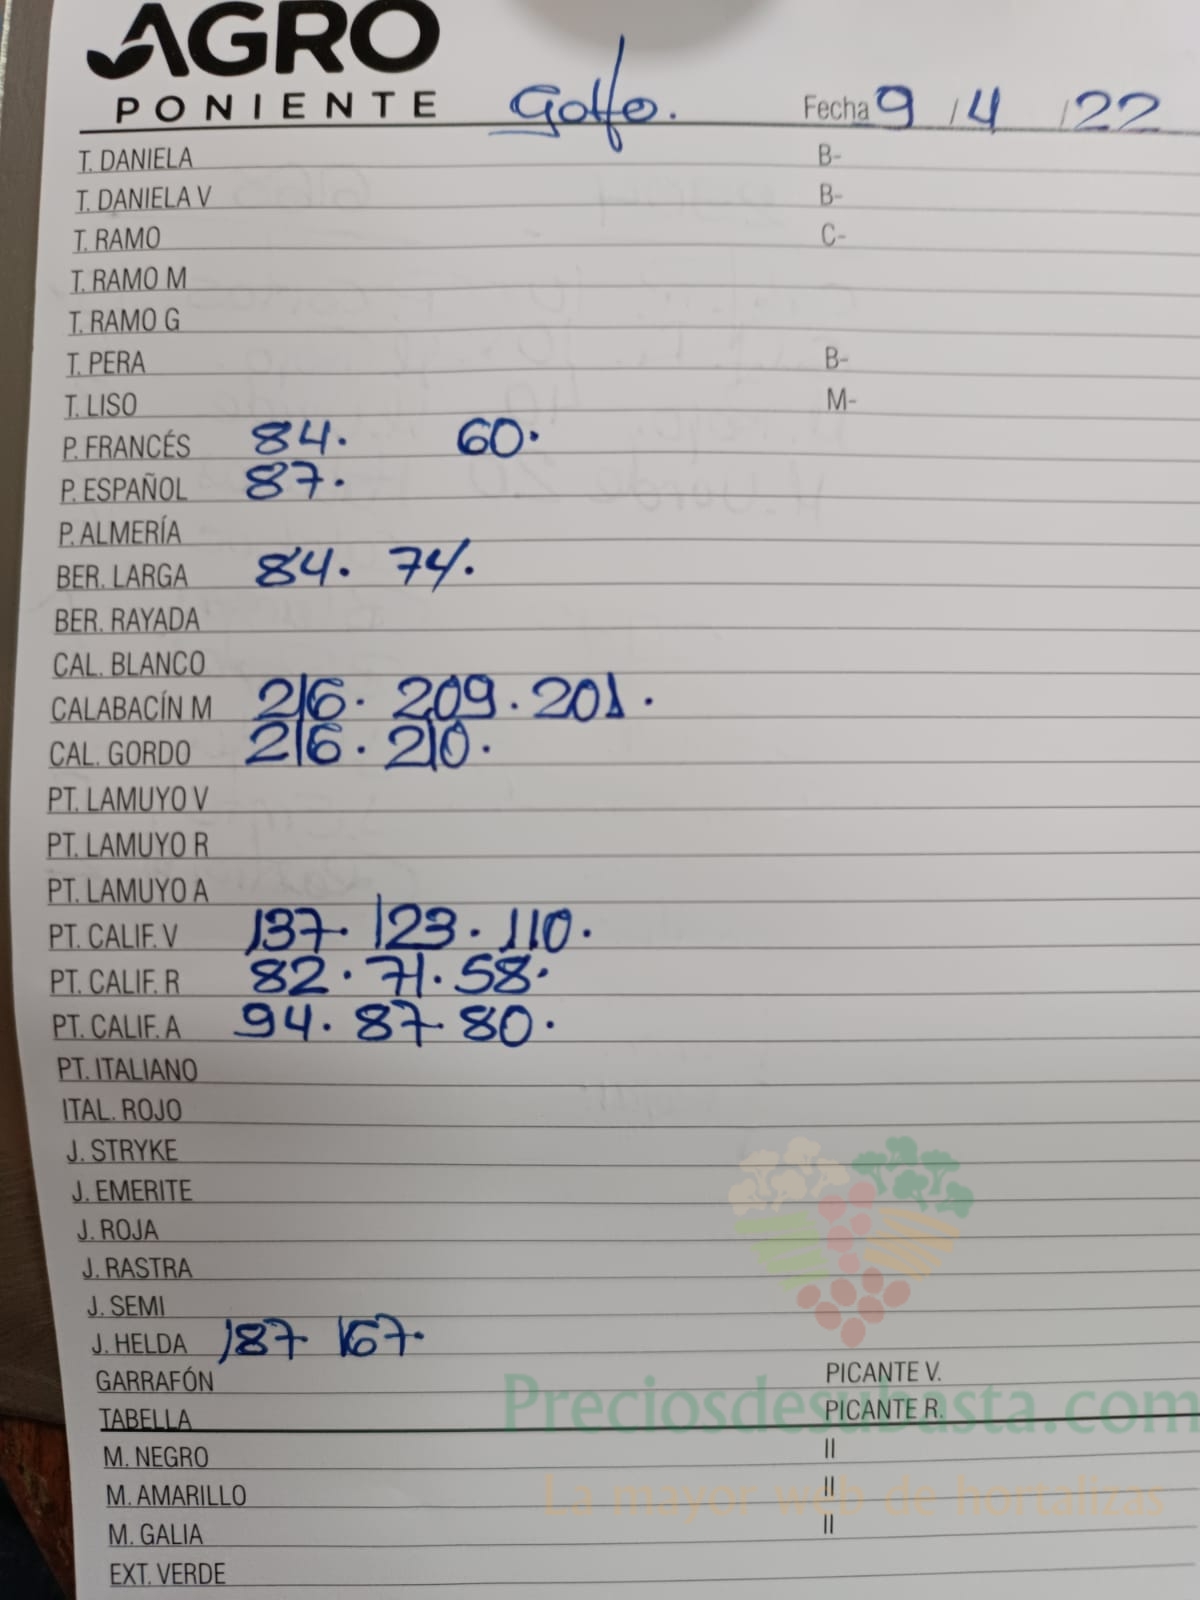 AGRO
PONIENTE Golfo. Fecha 9 / 4 / 22
T. DANIELA B-
T. DANIELA V B-
T. RAMO C-
T. RAMO M
T. RAMO G
T. PERA B-
T. LISO M-
P. FRANCÉS 84. 60.
P. ESPAÑOL 87.
P. ALMERÍA
BER. LARGA 84. 74.
BER. RAYADA
CAL. BLANCO
CALABACÍN M 216. 209. 201.
CAL. GORDO 216. 210.
PT. LAMUYO V
PT. LAMUYO R
PT. LAMUYO A
PT. CALIF. V 137. 123. 110.
PT. CALIF. R 82. 71. 58.
PT. CALIF. A 94. 87. 80.
PT. ITALIANO
ITAL. ROJO
J. STRYKE
J. EMERITE
J. ROJA
J. RASTRA
J. SEMI
J. HELDA 187 167.
GARRAFÓN PICANTE V.
Preciosdesubasta.com
TABELLA PICANTE R.
M. NEGRO II
M. AMARILLO II
La mayor web de hortalizas
M. GALIA II
EXT. VERDE